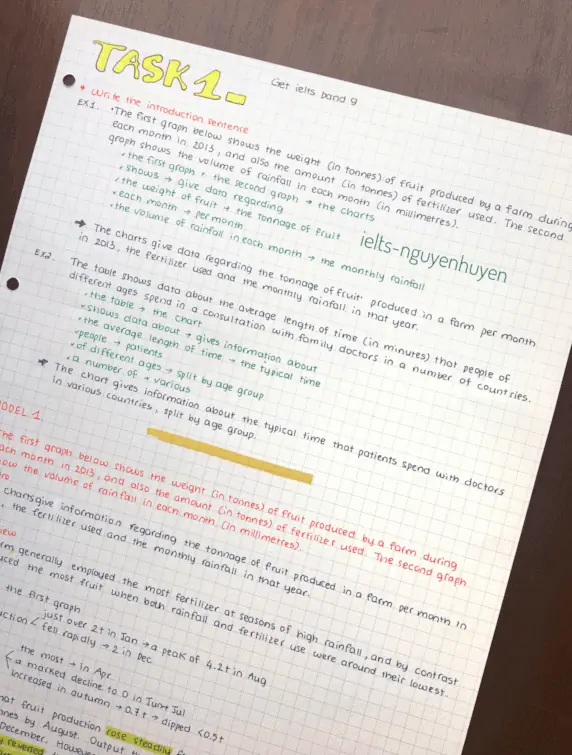 TASK 1_
Get ielts band 9
* Write the introduction sentence
EX1. • The first graph below shows the weight (in tonnes) of fruit produced by a farm during
each month in 2013, and also the amount (in tonnes) of fertilizer used. The second
graph shows the volume of rainfall in each month (in millimetres).
• the first graph + the second graph → the charts
• shows → give data regarding
• the weight of fruit → the tonnage of fruit
• each month → per month
• the volume of rainfall in each month → the monthly rainfall
ielts-nguyenhuyen
→ The charts give data regarding the tonnage of fruit produced in a farm per month
in 2013, the fertilizer used and the monthly rainfall in that year.
Ex2. The table shows data about the average length of time (in minutes) that people of
different ages spend in a consultation with family doctors in a number of countries.
• the table → the chart
• shows data about → gives information about
• the average length of time → the typical time
• people → patients
• of different ages → split by age group
• a number of → various
→ The chart gives information about the typical time that patients spend with doctors
in various countries, split by age group.
MODEL 1.
The first graph below shows the weight (in tonnes) of fruit produced by a farm during
each month in 2013, and also the amount (in tonnes) of fertilizer used. The second graph
the volume of rainfall in each month (in millimetres).
charts give information regarding the tonnage of fruit produced in a farm per month in
, the fertilizer used and the monthly rainfall in that year.
generally employed the most fertilizer at seasons of high rainfall, and by contrast
the most fruit when both rainfall and fertilizer use were around their lowest.
the first graph
just over 2t in Jan → a peak of 4.2t in Aug
fell rapidly → 2 in Dec
the most → in Apr
a marked decline to 0 in Jun + Jul
increased in autumn → 0.7t → dipped <0.5t
fruit production rose steadily
by August. Output
December. However